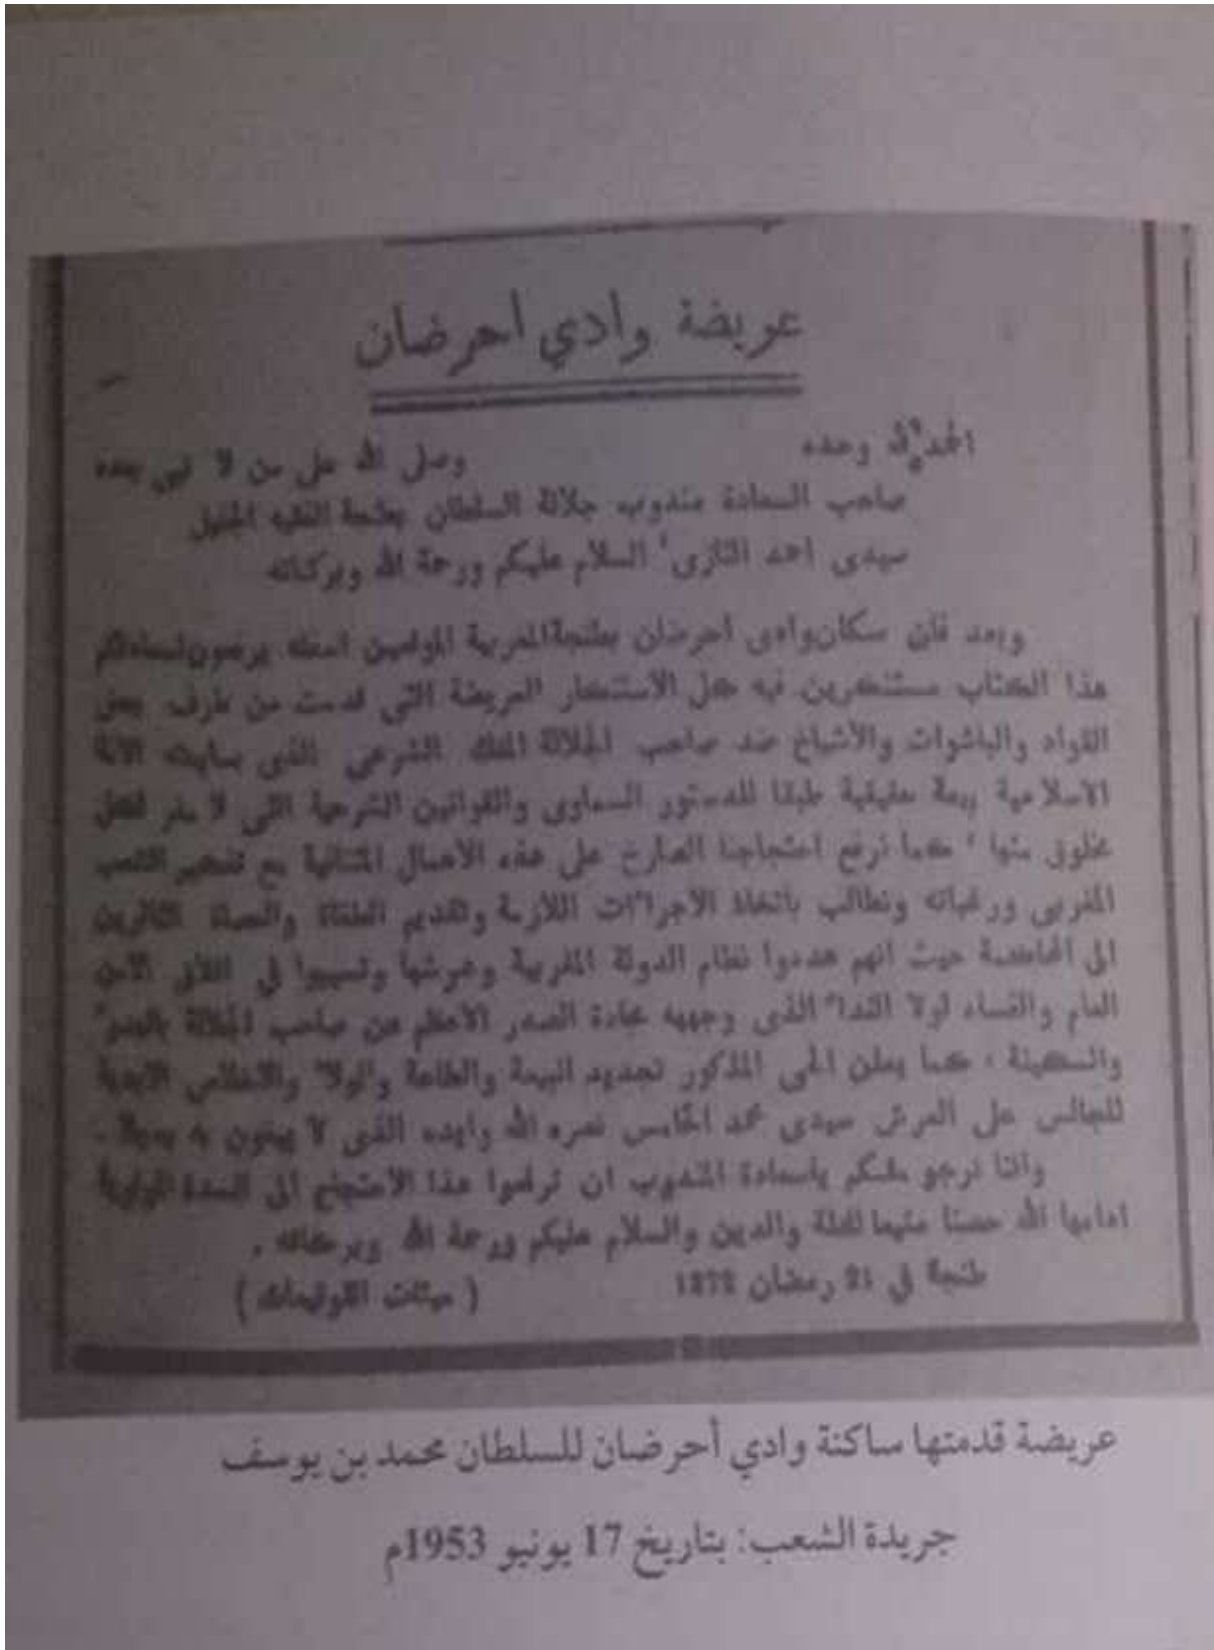 عريضة وادي احرضان
الحمد لله وحده وصلى الله على من لا نبي بعده
صاحب السعادة مندوب جلالة السلطان بطنجة الفقيه الجليل
سيدى احمد التازى، السلام عليكم ورحمة الله وبركاته
وبعد فان سكان وادى احرضان بطنجة المغربية الموقعين اسفله يرفعون لسعادتكم
هذا الكتاب مستنكرين فيه كل الاستنكار العريضة التى قدمت من طرف بعض
القواد والباشوات والأشياخ ضد صاحب الجلالة الملك الشرعى الذى بايعته الامة
الاسلامية بيعة حقيقية طبقا للدستور السماوى والقوانين الشرعية التى لا مفر لكل
مخلوق منها، كما نرفع احتجاجنا الصارخ على هذه الأعمال المتنافية مع الشعب
المغربى ورغباته ونطالب باتخاذ الاجراءات اللازمة وتقديم الطغاة والعصاة الثائرين
الى المحاكمة حيث انهم هددوا نظام الدولة المغربية وعرشها وتسببوا في الأمن
العام والفساد لولا النداء الذى وجهه الصدر الأعظم عن صاحب الجلالة بالهدوء
والسكينة، كما يعلن الحى المذكور تجديد البيعة والطاعة والولاء والاخلاص الابدية
للجالس على العرش سيدى محمد الخامس نصره الله وايده الذى لا يبغون به بديلا.
واننا نرجو منكم ياسعادة المندوب ان ترفعوا هذا الاحتجاج الى السدة المولوية
ادامها الله حصنا منيعا للملة والدين والسلام عليكم ورحمة الله وبركاته.
طنجة في 21 رمضان 1372 (مئات التوقيعات)
عريضة قدمتها ساكنة وادي أحرضان للسلطان محمد بن يوسف
جريدة الشعب: بتاريخ 17 يونيو 1953م